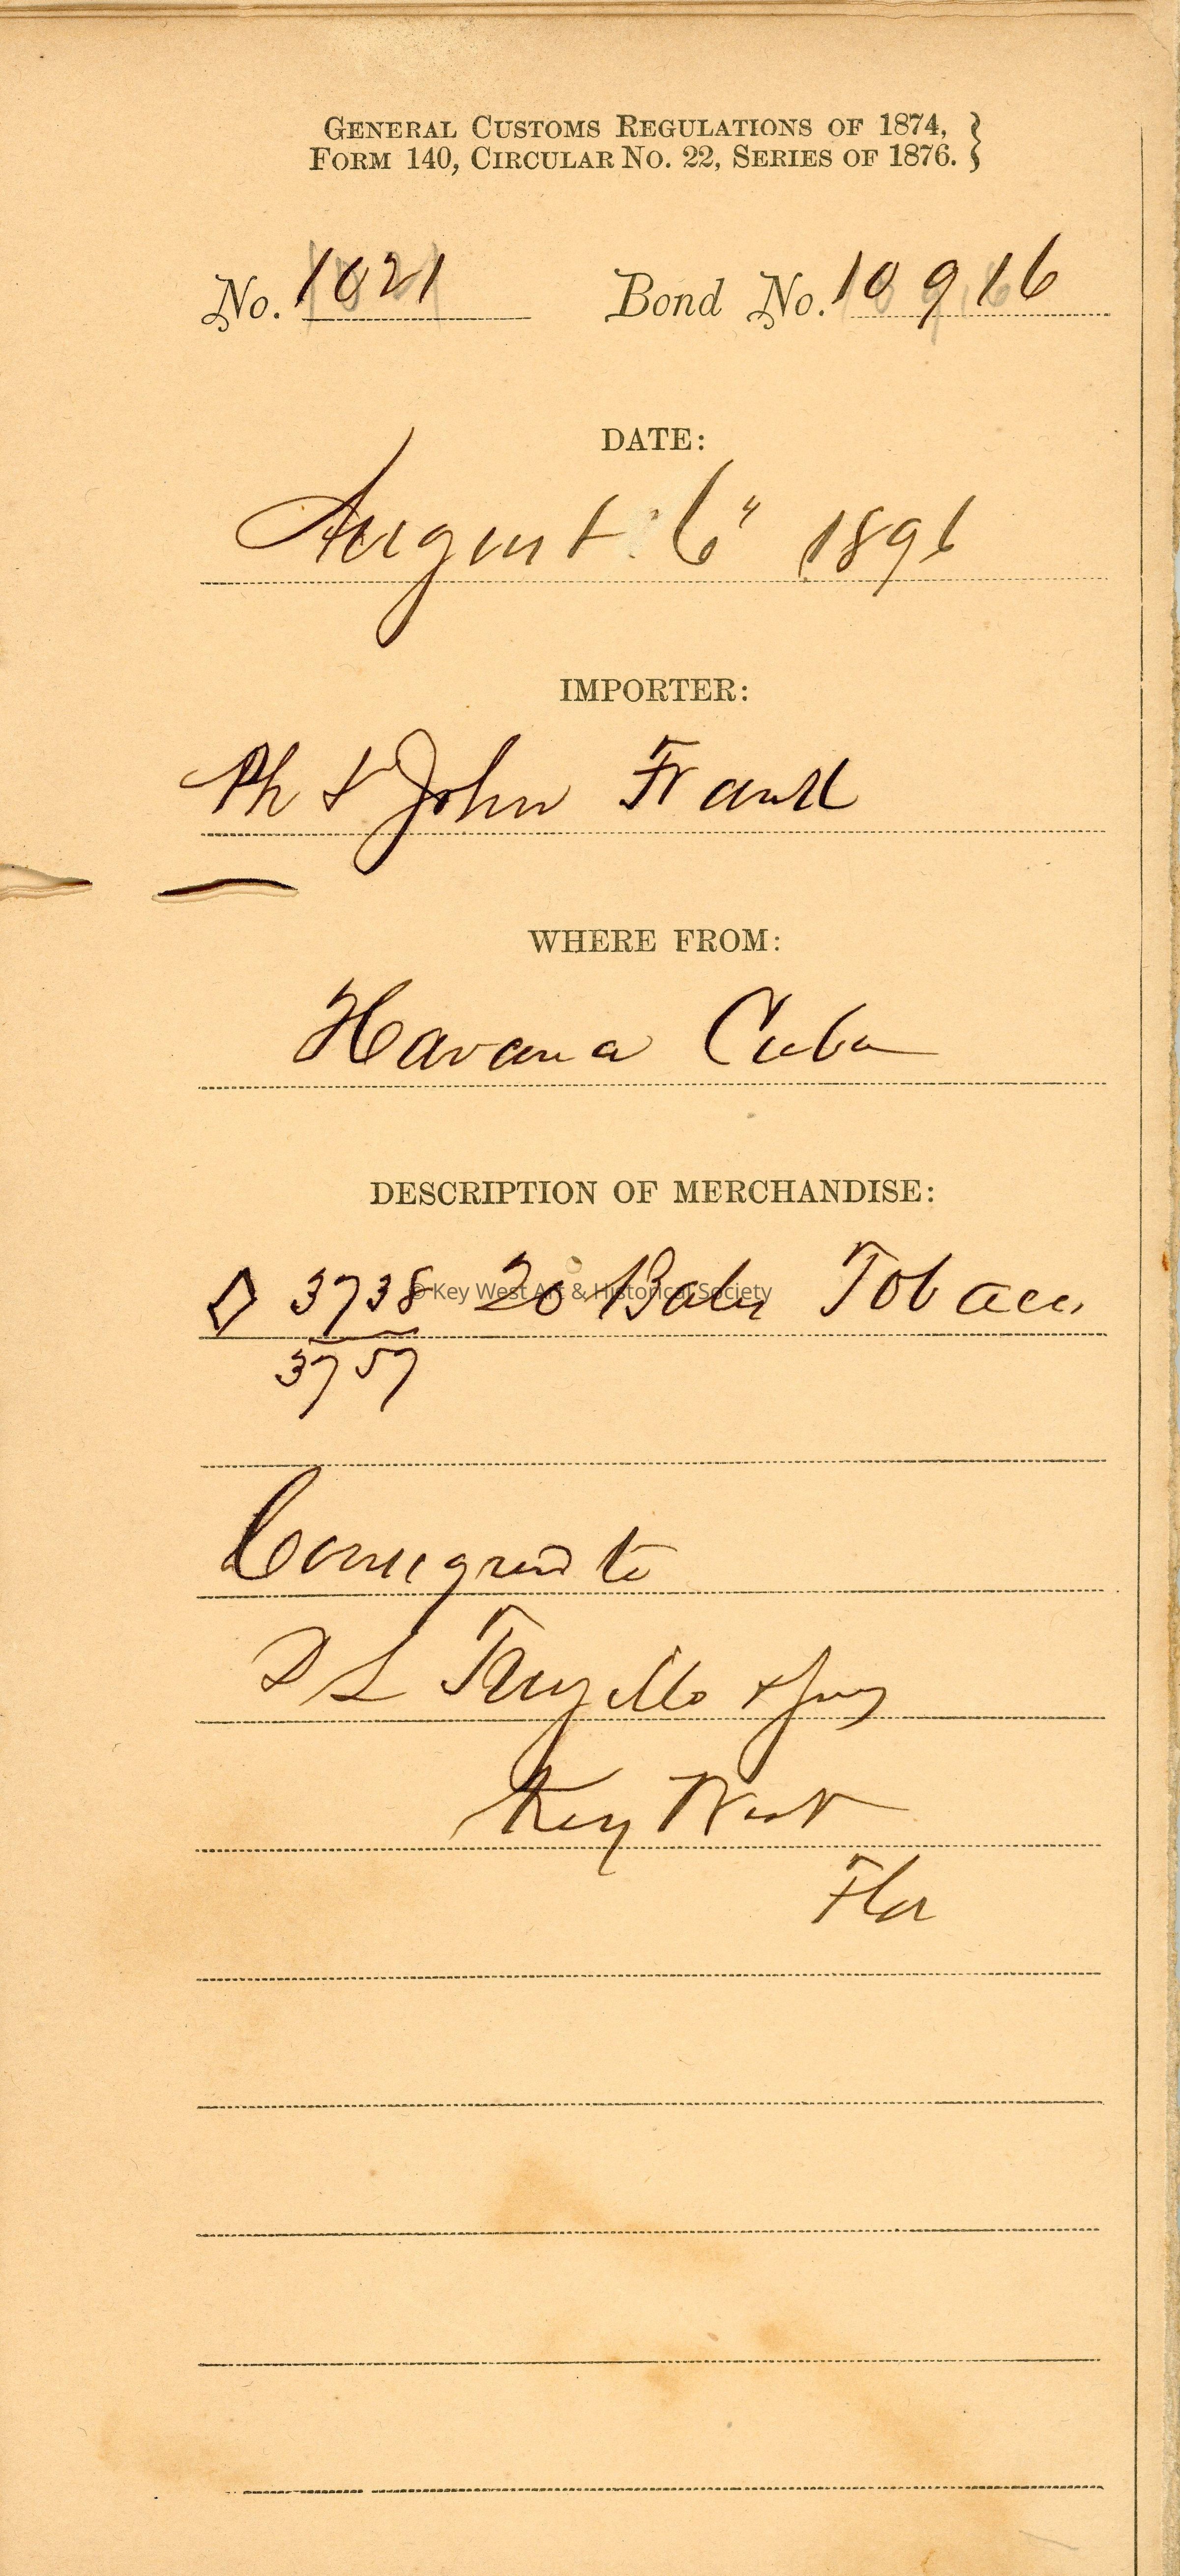 GENERAL CUSTOMS REGULATIONS OF 1874,
FORM 140, CIRCULAR NO. 22, SERIES OF 1876.
No. 1021 Bond No. 10916
DATE:
August 6" 1896
IMPORTER:
Ph & John Frank
WHERE FROM:
Havana Cuba
DESCRIPTION OF MERCHANDISE:
3738 20 Bales Tobacco
© Key West Art & Historical Society
3757
Consigned to
D L Trujillo & Sons
Key West
Fla